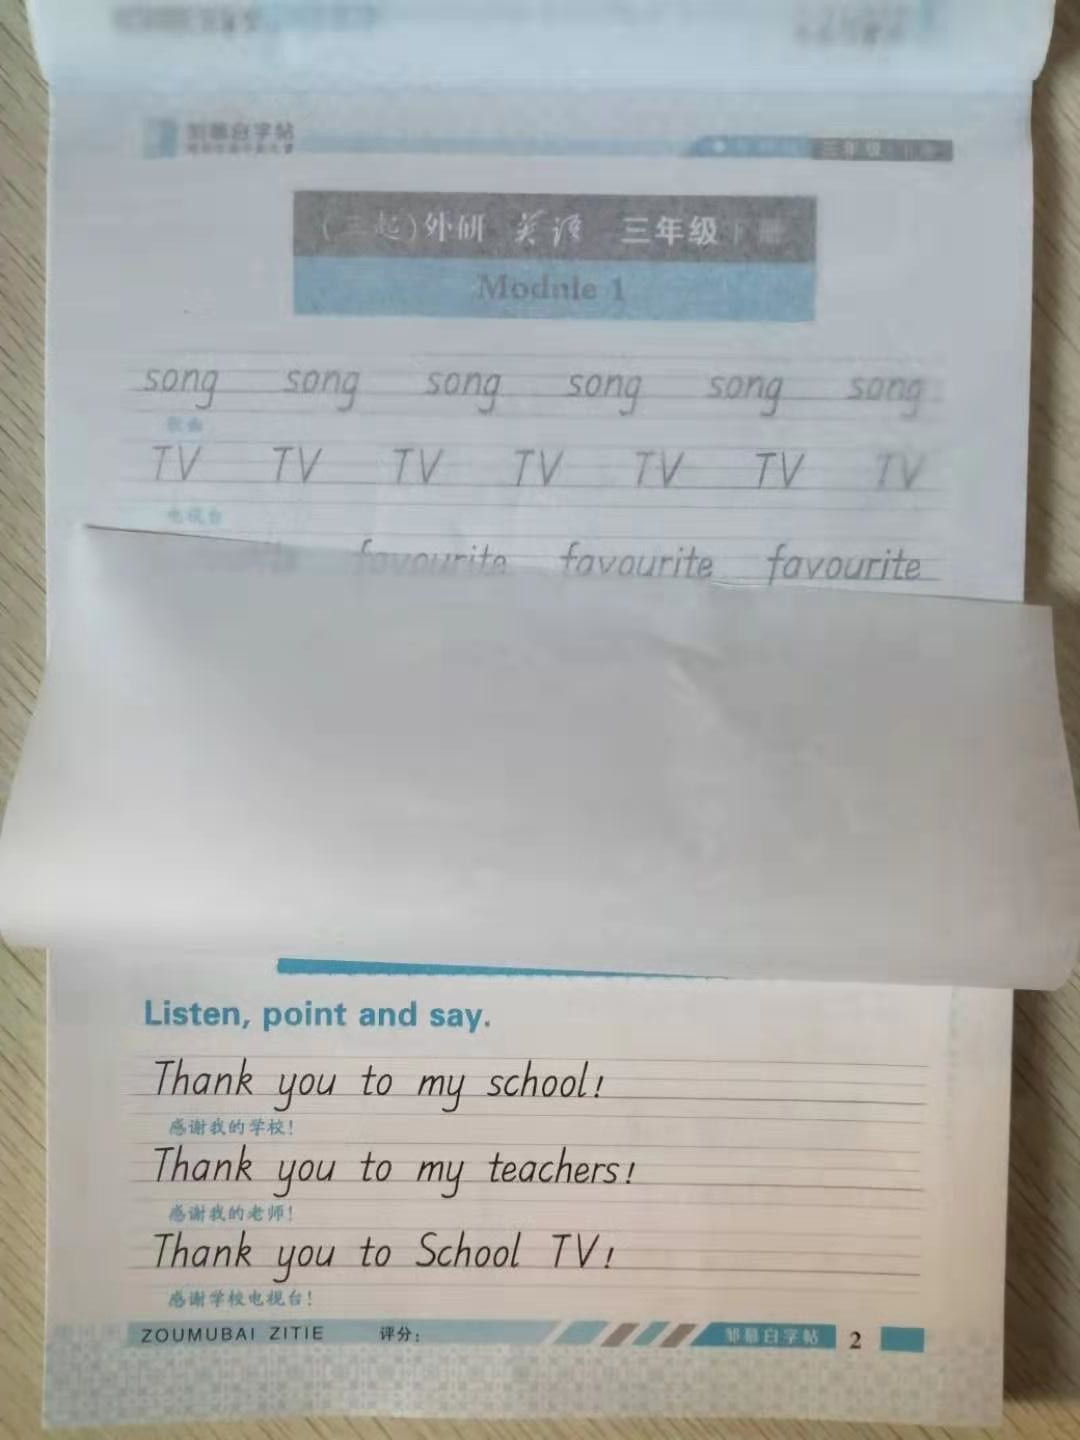 邹慕白字帖
三年级·下册
(三起)外研 英语 三年级下册
Module 1
song song song song song song
歌曲
TV TV TV TV TV TV TV
电视台
favourite favourite favourite
Listen, point and say.
Thank you to my school!
感谢我的学校!
Thank you to my teachers!
感谢我的老师!
Thank you to School TV!
感谢学校电视台!
ZOUMUBAI ZITIE 评分: 邹慕白字帖 2